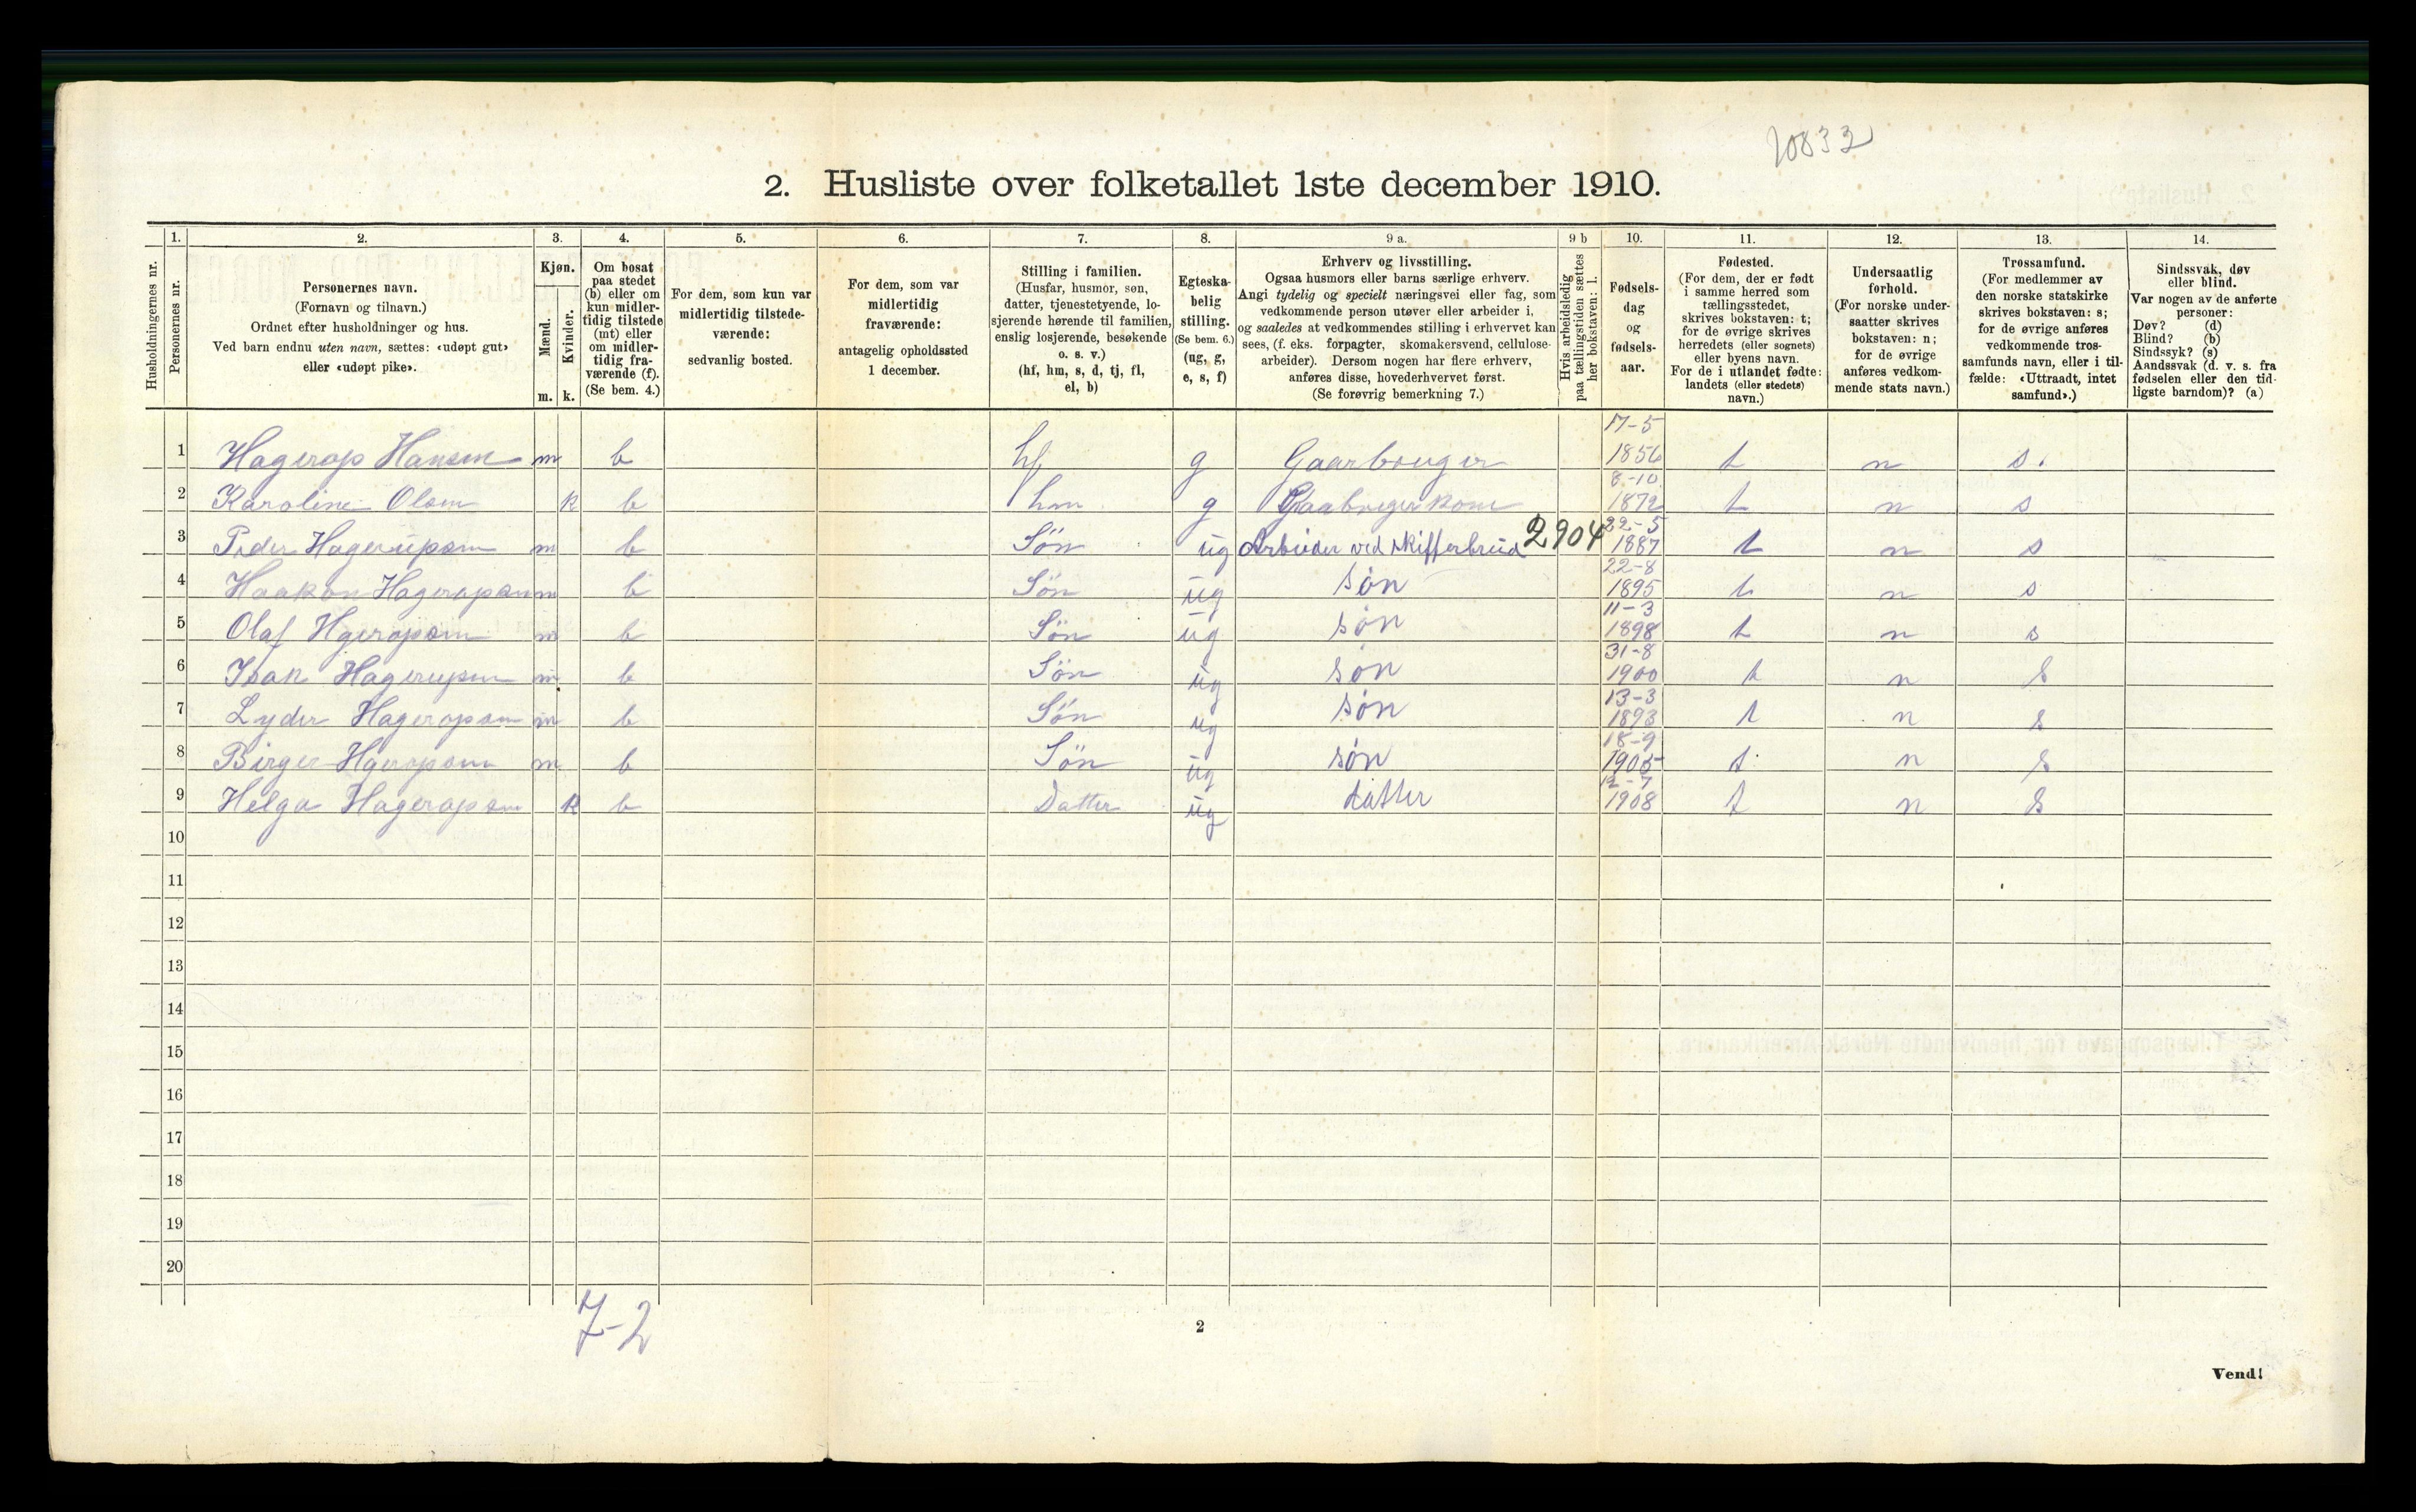 20833
2. Husliste over folketallet 1ste december 1910.
Husholdningernes nr.
1. Personernes nr.
2. Personernes navn.
(Fornavn og tilnavn.)
Ordnet efter husholdninger og hus.
Ved barn endnu uten navn, sættes: «udøpt gut»
eller «udøpt pike».
3. Kjøn.
Mænd. m.
Kvinder. k.
4. Om bosat
paa stedet
(b) eller om
kun midler-
tidig tilstede
(mt) eller
om midler-
tidig fra-
værende (f).
(Se bem. 4.)
5. For dem, som kun var
midlertidig tilstede-
værende:
sedvanlig bosted.
6. For dem, som var
midlertidig
fraværende:
antagelig opholdssted
1 december.
7. Stilling i familien.
(Husfar, husmor, søn,
datter, tjenestetyende, lo-
sjerende hørende til familien,
enslig losjerende, besøkende
o. s. v.)
(hf, hm, s, d, tj, fl,
el, b)
8. Egteska-
belig
stilling.
(Se bem. 6.)
(ug, g,
e, s, f)
9 a. Erhverv og livsstilling.
Ogsaa husmors eller barns særlige erhverv.
Angi tydelig og specielt næringsvei eller fag, som
vedkommende person utøver eller arbeider i,
og saaledes at vedkommendes stilling i erhvervet kan
sees, (f. eks. forpagter, skomakersvend, cellulose-
arbeider). Dersom nogen har flere erhverv,
anføres disse, hovederhvervet først.
(Se forøvrig bemerkning 7.)
9 b Hvis arbeidsledig
paa tællingstiden sættes
her bokstaven: l.
10. Fødsels-
dag
og
fødsels-
aar.
11. Fødested.
(For dem, der er født
i samme herred som
tællingsstedet,
skrives bokstaven: t;
for de øvrige skrives
herredets (eller sognets)
eller byens navn.
For de i utlandet fødte:
landets (eller stedets)
navn.)
12. Undersaatlig
forhold.
(For norske under-
saatter skrives
bokstaven: n;
for de øvrige
anføres vedkom-
mende stats navn.)
13. Trossamfund.
(For medlemmer av
den norske statskirke
skrives bokstaven: s;
for de øvrige anføres
vedkommende tros-
samfunds navn, eller i til-
fælde: «Uttraadt, intet
samfund».)
14. Sindssvak, døv
eller blind.
Var nogen av de anførte
personer:
Døv? (d)
Blind? (b)
Sindssyk? (s)
Aandssvak (d. v. s. fra
fødselen eller den tid-
ligste barndom)? (a)
1 Hagerop Hansen m b hf g Gaarbruger 17-5 1856 t n s.
2 Karoline Olsen k b hm g Gaabrugerkone 8-10 1872 t n s
3 Peder Hagerupsen m b Søn ug Arbeider ved skifferbrud 2904 22-5 1887 t n s
4 Haakon Hageropsen m b Søn ug søn 22-8 1895 t n s
5 Olaf Hgeropsen m b Søn ug søn 11-3 1898 t n s
6 Isak Hagerupsen m b Søn ug søn 31-8 1900 t n s
7 Lyder Hageropsen m b Søn ug søn 13-3 1893 t n s
8 Birger Hgeropsen m b Søn ug søn 18-9 1905 t n s
9 Helga Hageropsen k b Datter ug datter 12-7 1908 t n s
10
11
12
13
14
15
16
17
18
19
20
7-2
2
Vend!